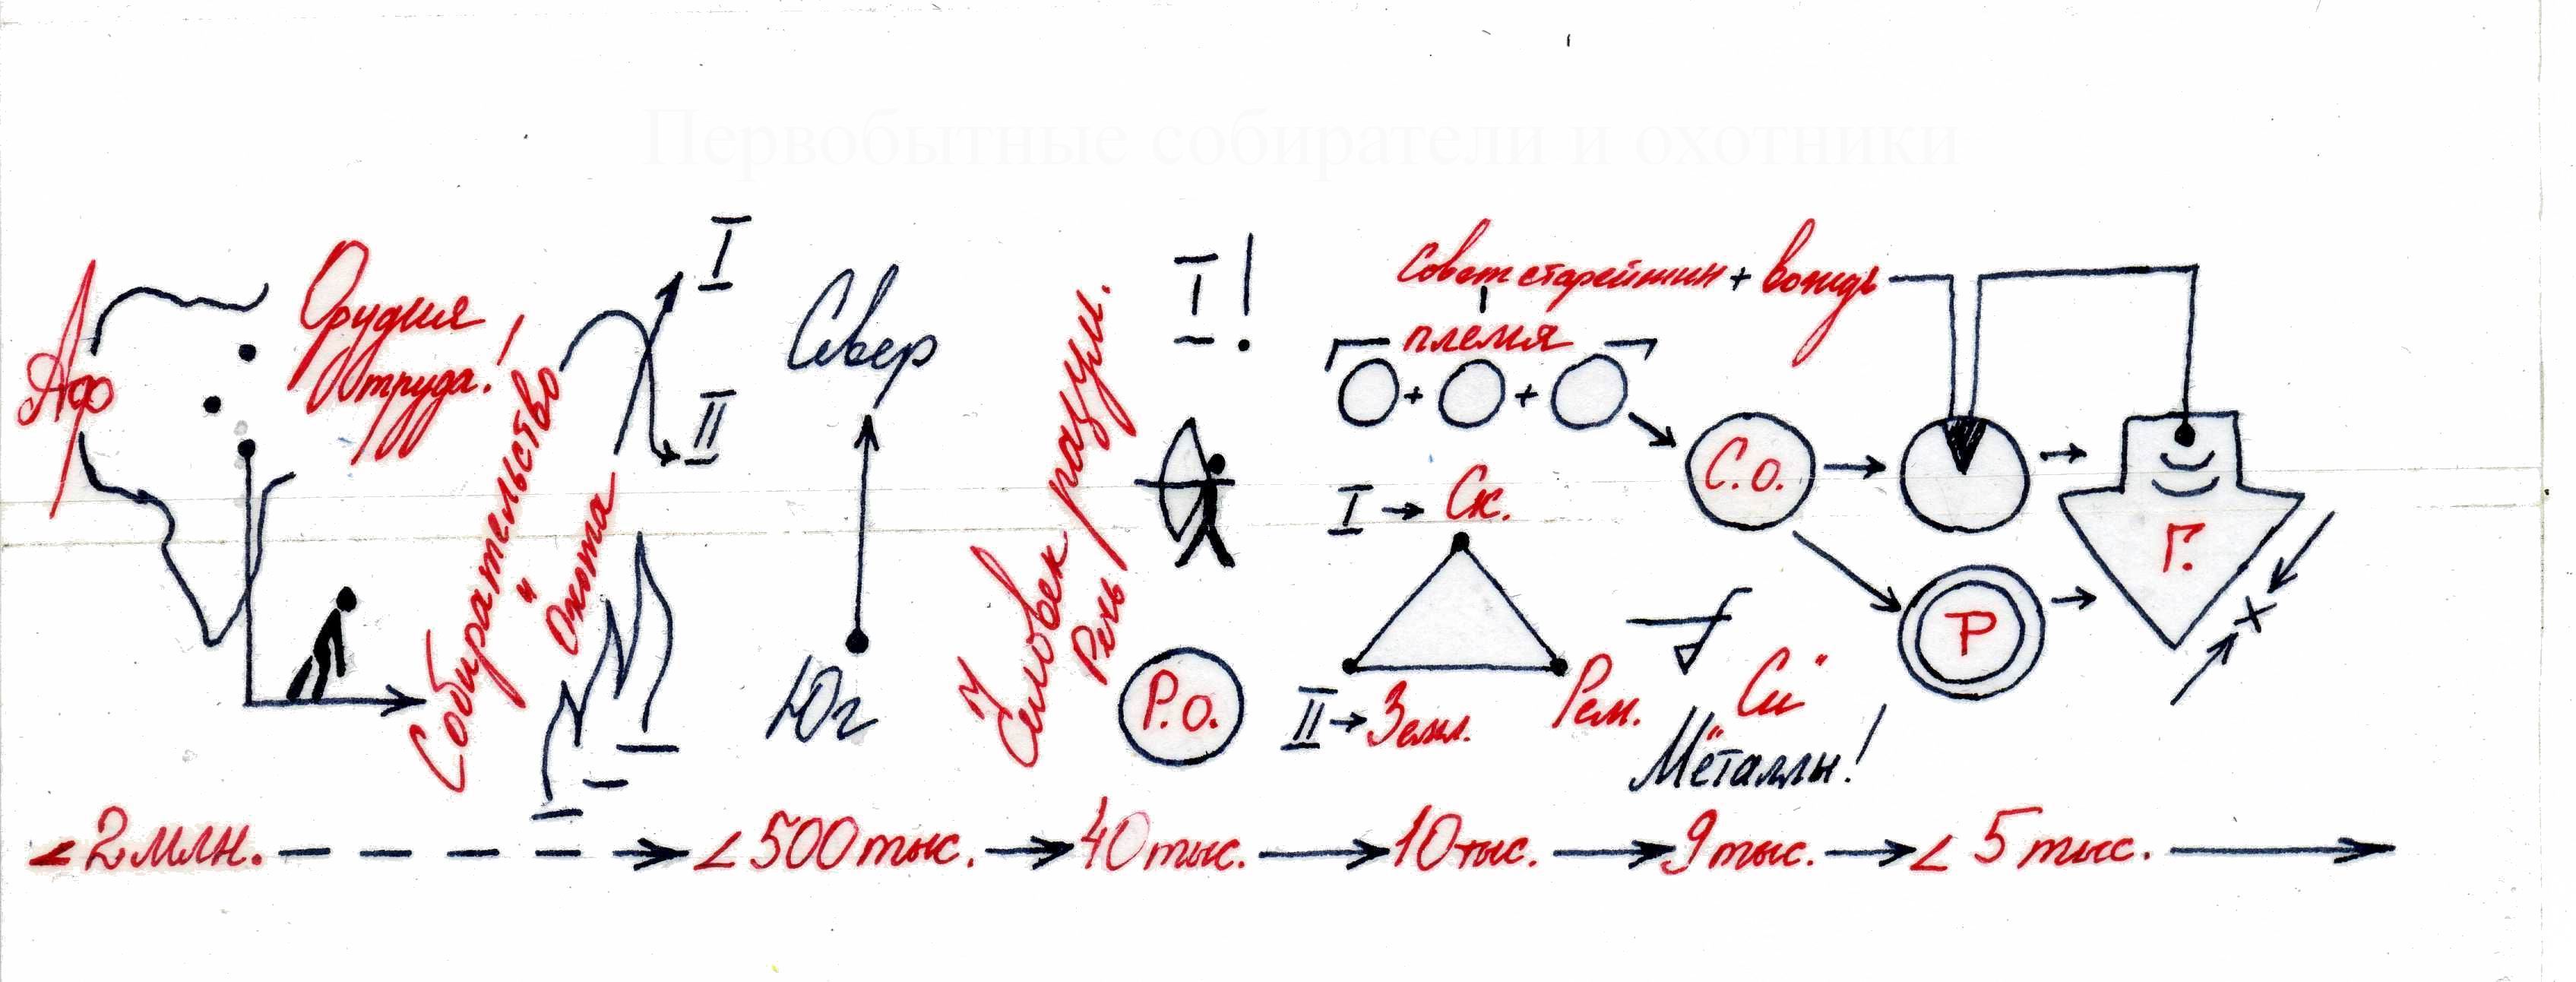 Первобытные собиратели и охотники
Аф
Орудия
труда!
Собирательство
и
Охота
I
II
Север
Юг
Человек разумн.
Речь
I!
Р.О.
Совет старейшин + вождь
племя
+ +
С.О.
I → Ск.
II → Земл.
Рем.
"Си"
Металлы!
Р
Г.
< 2 млн.
< 500 тыс.
40 тыс.
10 тыс.
9 тыс.
< 5 тыс.